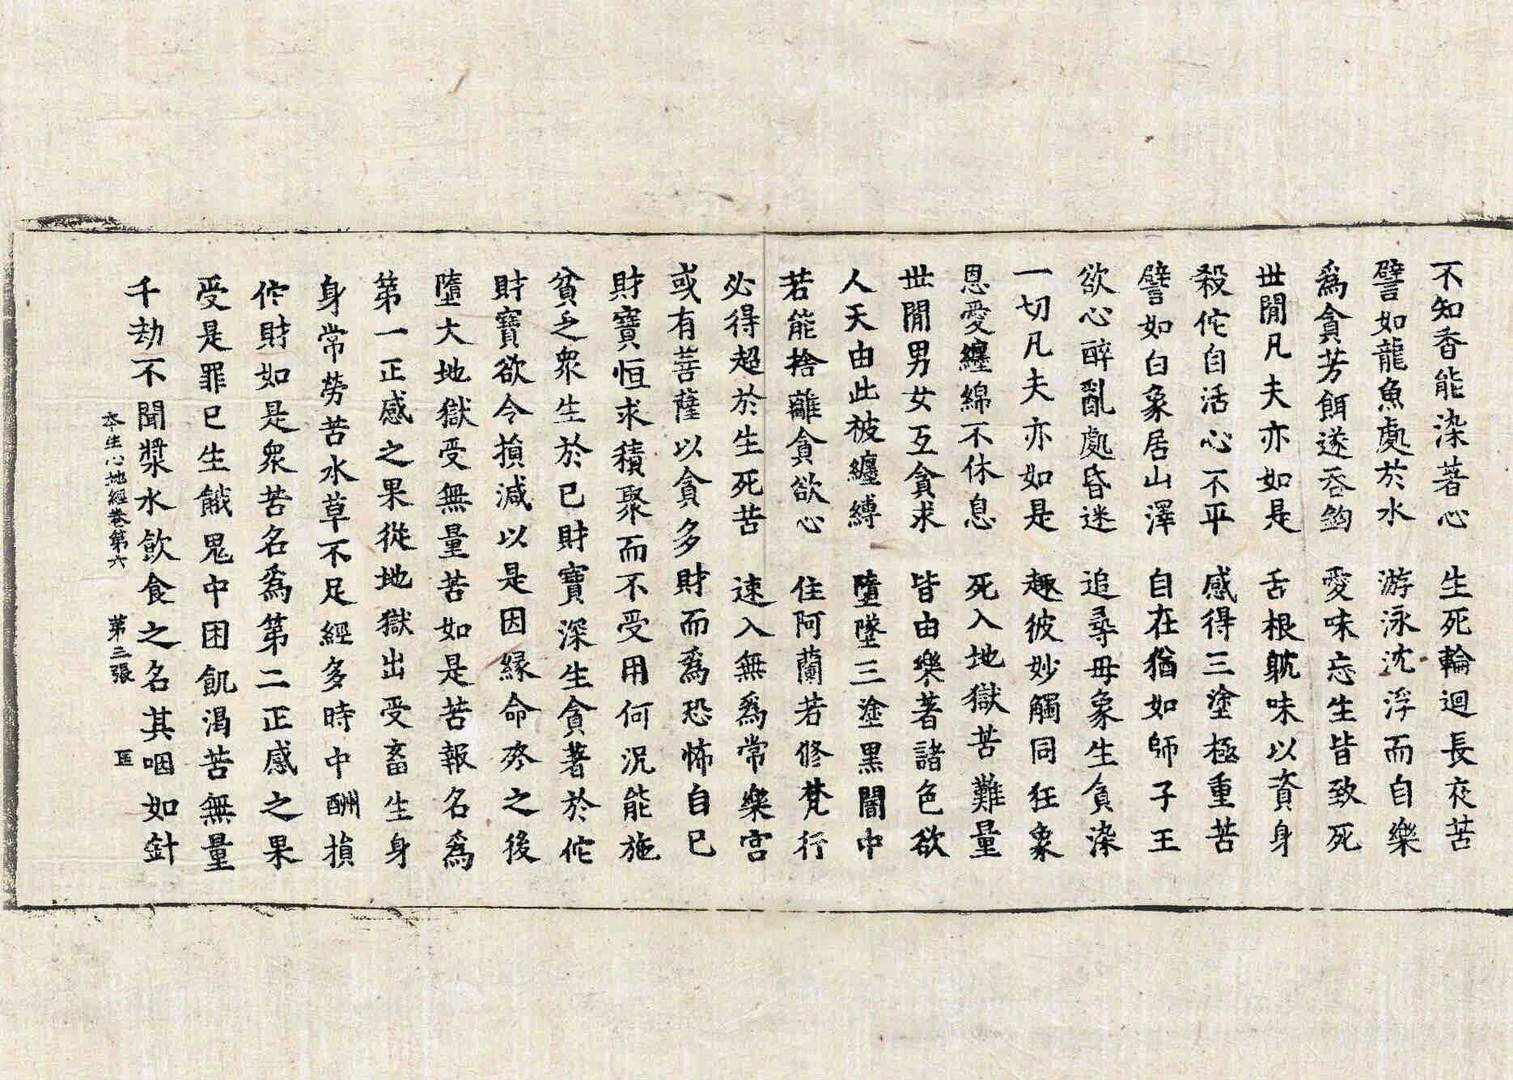 不知香能染著心　生死輪迴長夜苦
譬如龍魚處於水　游泳沈浮而自樂
為貪芳餌遂吞鉤　愛味忘生皆致死
世閒凡夫亦如是　舌根躭味以資身
殺佗自活心不平　感得三塗極重苦
譬如白象居山澤　自在猶如師子王
欲心醉亂處昏迷　追尋母象生貪染
一切凡夫亦如是　趣彼妙觸同狂象
恩愛纏綿不休息　死入地獄苦難量
世閒男女互貪求　皆由樂著諸色欲
人天由此被纏縛　墮墜三塗黑闇中
若能捨離貪欲心　住阿蘭若修梵行
必得超於生死苦　速入無為常樂宮
或有菩薩以貪多財而為恐怖自己
財寶恒求積聚而不受用何況能施
貧乏眾生於已財寶深生貪著於佗
財寶欲令損減以是因緣命終之後
墮大地獄受無量苦如是苦報名為
第一正感之果從地獄出受畜生身
身常勞苦水草不足經多時中酬損
佗財如是眾苦名為第二正感之果
受是罪已生餓鬼中困飢渴苦無量
千劫不聞漿水飲食之名其咽如針
本生心地經卷第六　第三張